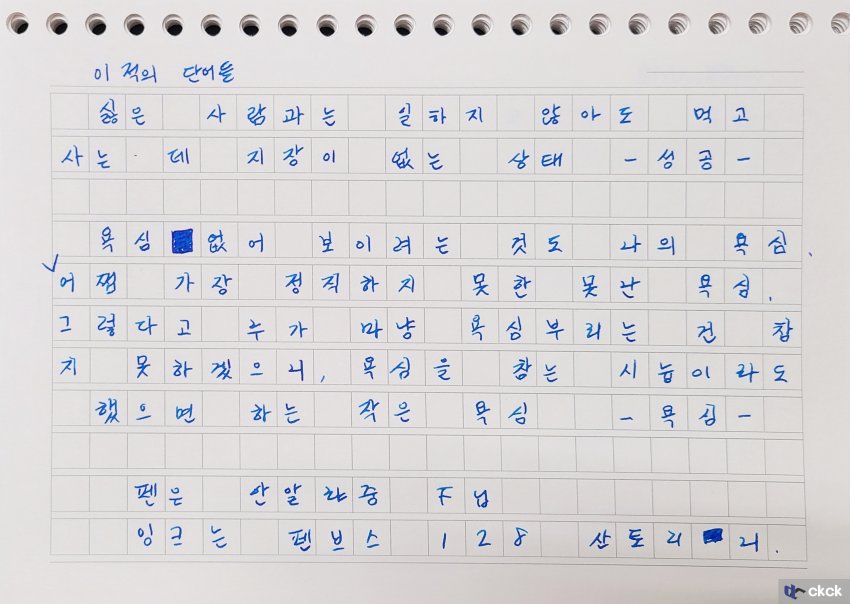 이적의 단어들
싫은 사람과는 일하지 않아도 먹고
사는 데 지장이 없는 상태 -성공-
욕심 없어 보이려는 것도 나의 욕심.
어쩜 가장 정직하지 못한 못난 욕심.
그렇다고 누가 마냥 욕심부리는 건 참
지 못하겠으니, 욕심을 참는 시늉이라도
했으면 하는 작은 욕심 -욕심-
펜은 안알랴줌 F닙
잉크는 펜브스 128 산토리니.
ckck